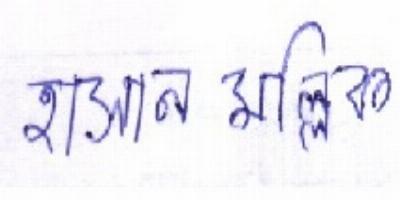 হাসান মল্লিক